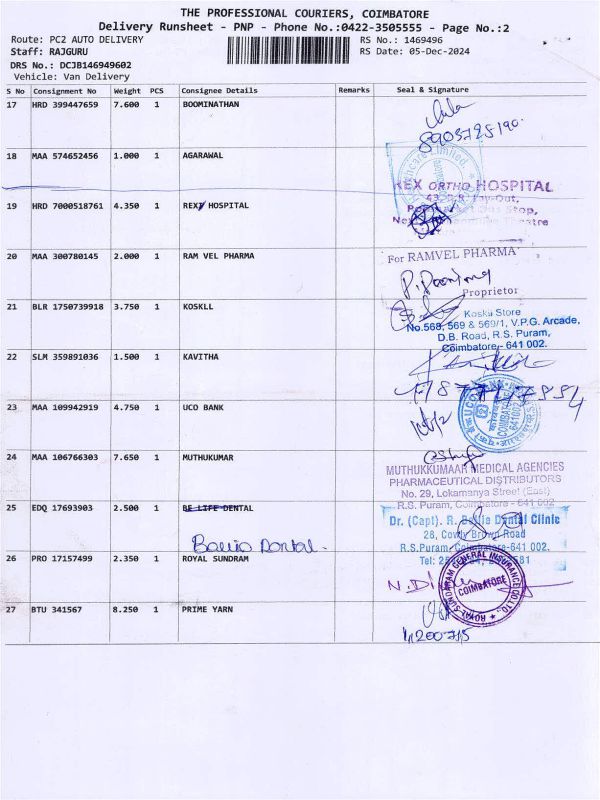 THE PROFESSIONAL COURIERS, COIMBATORE
Delivery Runsheet - PNP - Phone No.:0422-3505555 - Page No.:2
Route: PC2 AUTO DELIVERY
RS No.: 1469496
Staff: RAJGURU
RS Date: 05-Dec-2024
DRS No.: DCJB146949602
Vehicle: Van Delivery
S No Consignment No Weight PCS Consignee Details Remarks Seal & Signature
17 HRD 399447659 7.600 1 BOOMINATHAN
8903725190
18 MAA 574652456 1.000 1 AGARWAL
Healthcare Limited
19 HRD 7000518761 4.350 1 REXY HOSPITAL
REX ORTHO HOSPITAL
20 MAA 300780145 2.000 1 RAM VEL PHARMA
For RAMVEL PHARMA
Proprietor
21 BLR 1750739918 3.750 1 KOSKLL
Koskii Store
No.568, 569 & 569/1, V.P.G. Arcade,
D.B. Road, R.S. Puram,
Coimbatore - 641 002.
22 SLM 359891036 1.500 1 KAVITHA
23 MAA 109942919 4.750 1 UCO BANK
24 MAA 106766303 7.650 1 MUTHUKUMAR
MUTHUKKUMAAR MEDICAL AGENCIES
PHARMACEUTICAL DISTRIBUTORS
No. 29, Lokamanya Street (East)
R.S. Puram, Coimbatore - 641 002
25 EDQ 17693903 2.500 1 BE LIFE DENTAL
Dental
Dr. (Capt). R. Bellie Dental Clinic
28, Cowly Brown Road
R.S.Puram, Coimbatore-641 002.
26 PRO 17157499 2.350 1 ROYAL SUNDRAM
ROYAL SUNDARAM GENERAL INSURANCE CO. LTD.
COIMBATORE
27 BTU 341567 8.250 1 PRIME YARN